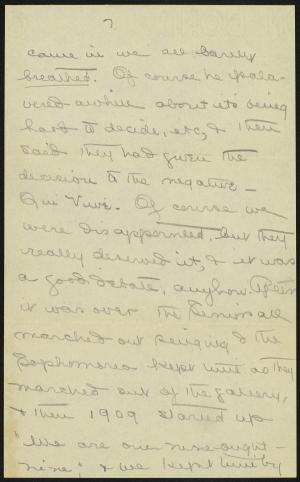 7
came in we all barely
breathed. Of course he pala-
vered awhile about it's being
hard to decide, etc, & then
said they had given the
decision to the negative –
Qui Vive. Of course we
were disappointed, but they
really deserved it, & it was
a good debate, anyhow. After
it was over the Seniors all
marched out singing & the
Sophomores kept time as they
marched out of the gallery,
& then 1909 started up
"We are one-nine-ought-
nine", & we kept time by